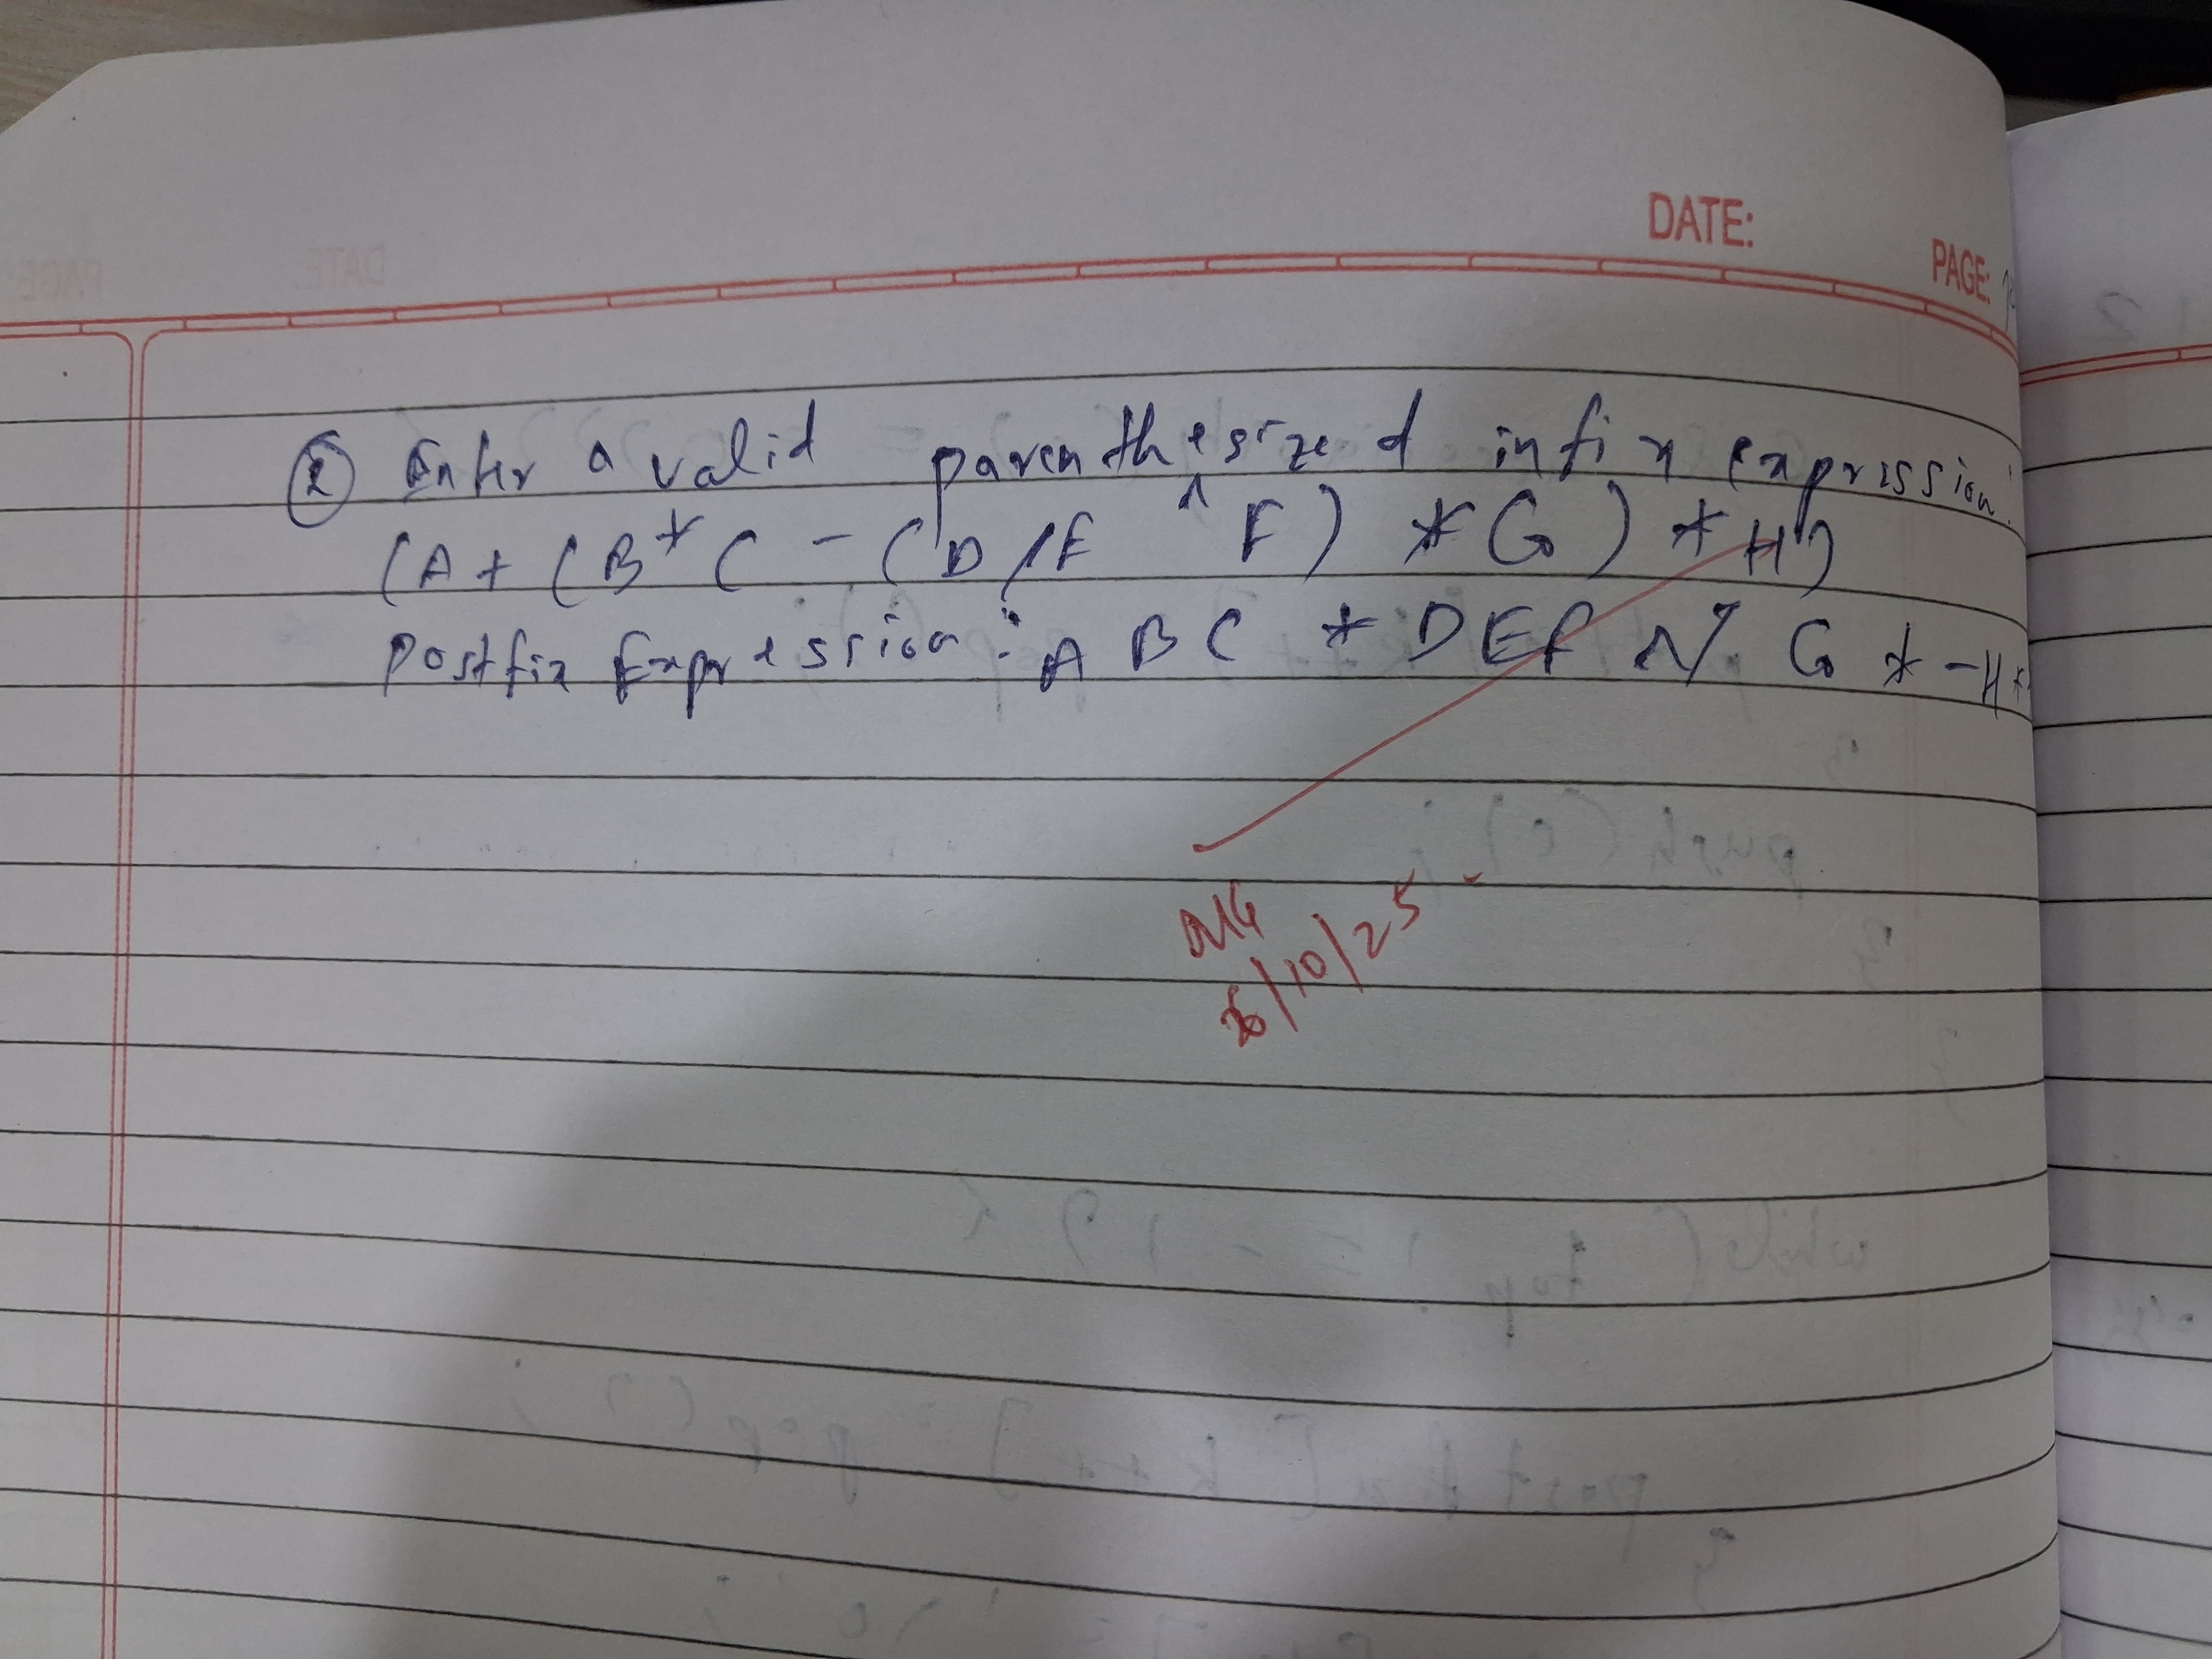 DATE:
PAGE:
② Enter a valid parenthesized infix expression:
(A + (B * C - (D / E ^ F) * G) * H)
Postfix Expression: A B C * D E F ^ / G * - H *
8/10/25